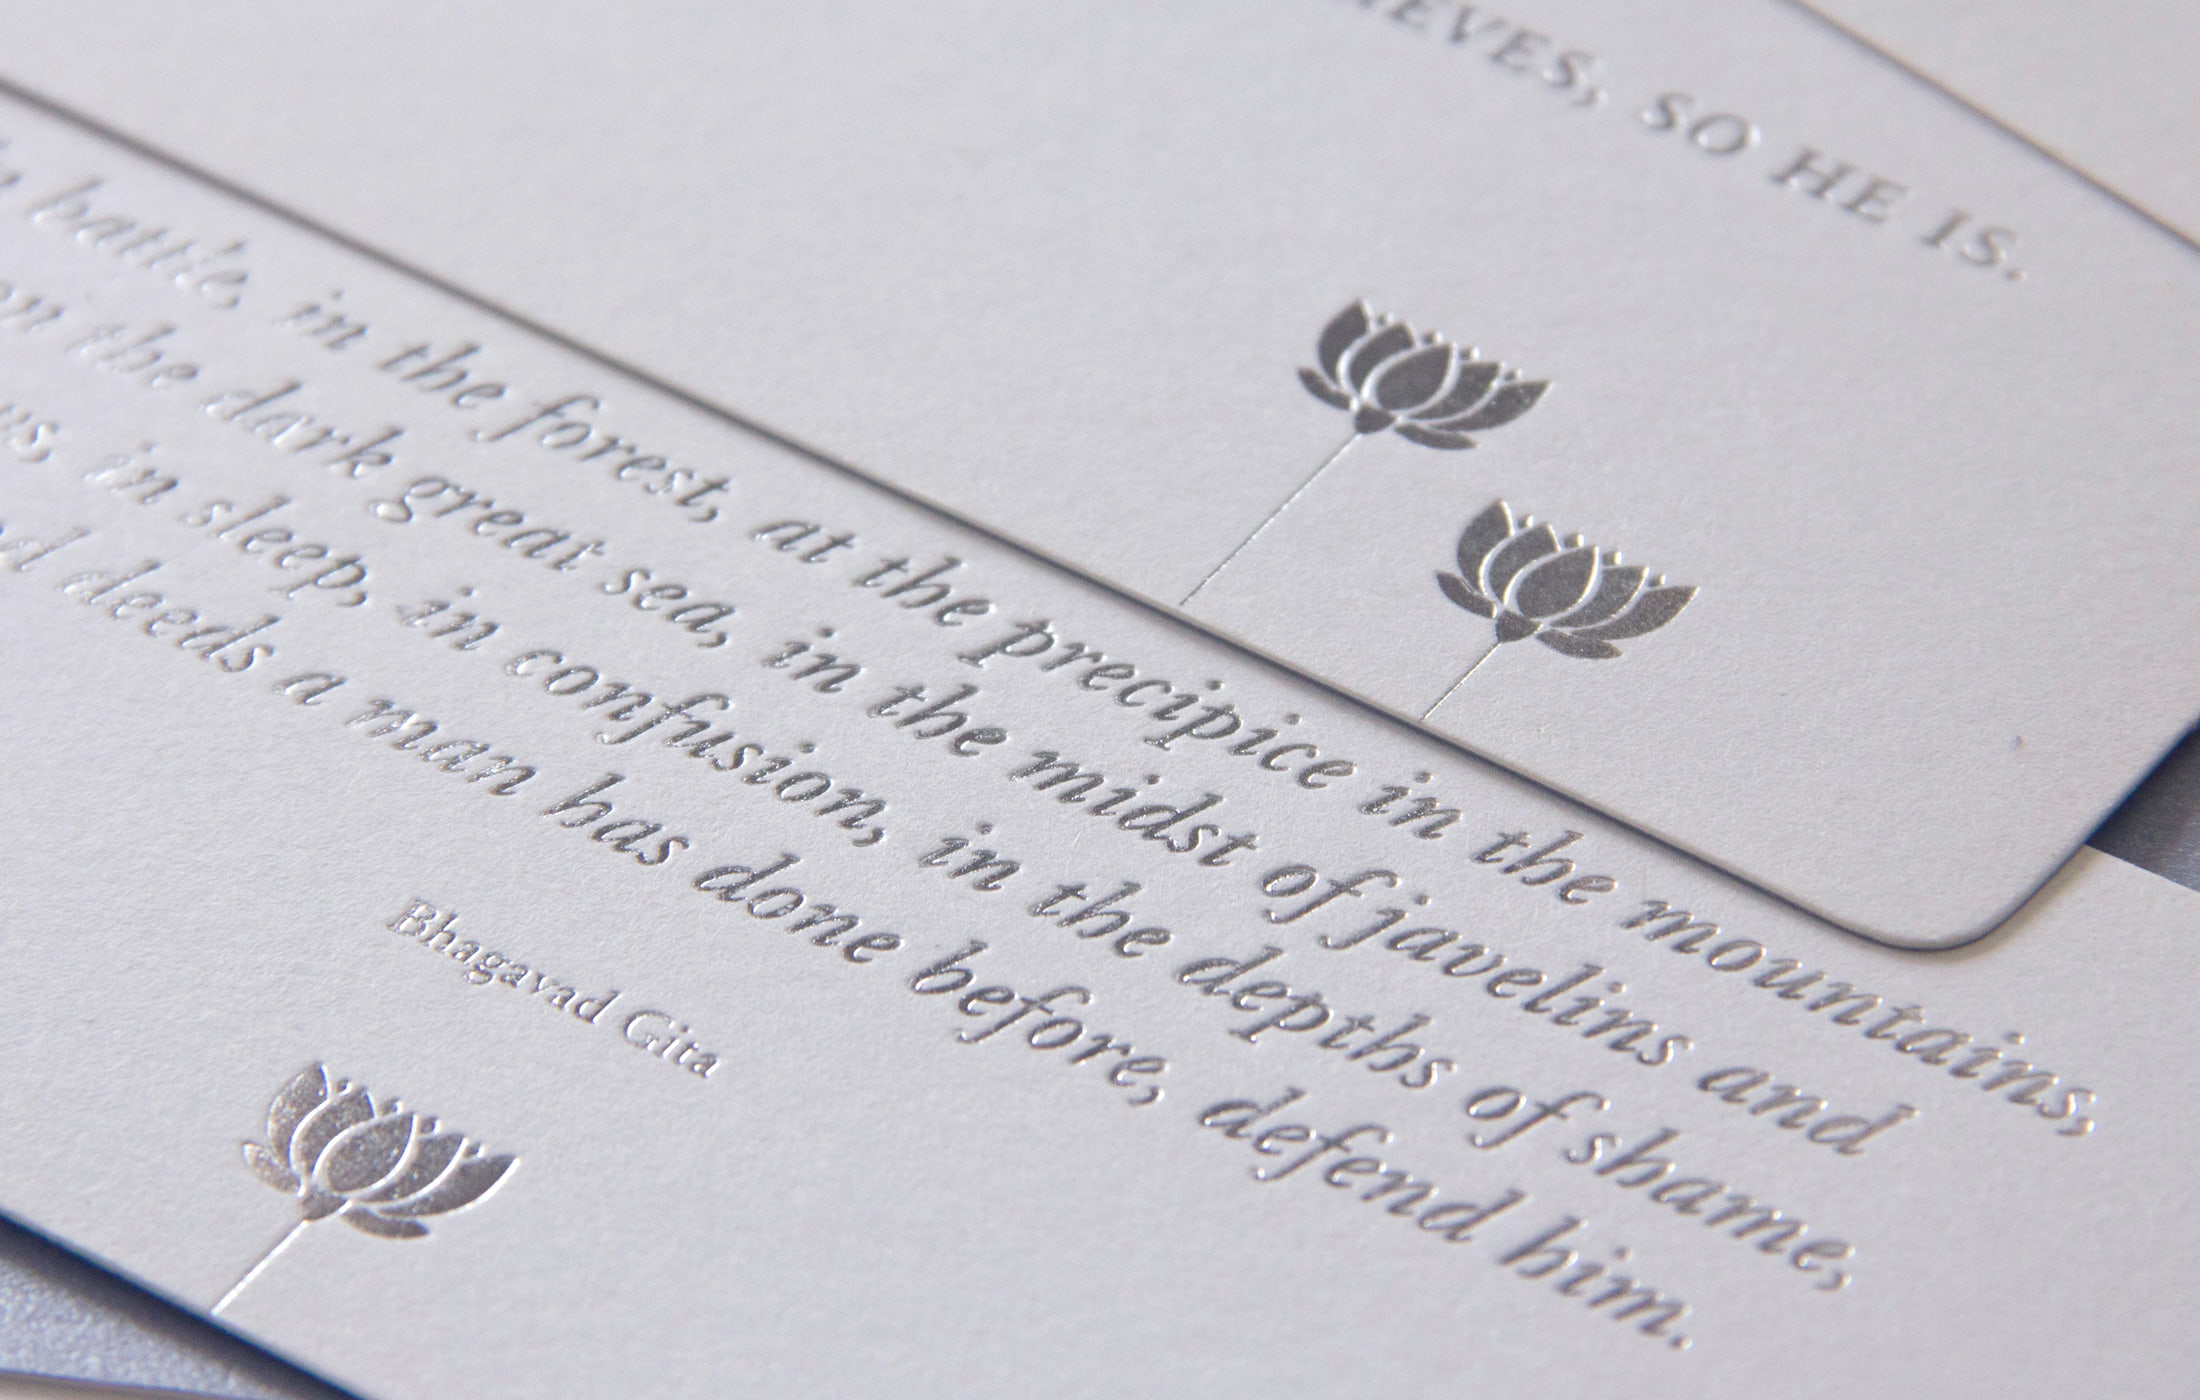 SO HE IS.
battle, in the forest, at the precipice in the mountains,
on the dark great sea, in the midst of javelins and
in sleep, in confusion, in the depths of shame,
deeds a man has done before, defend him.
Bhagavad Gita